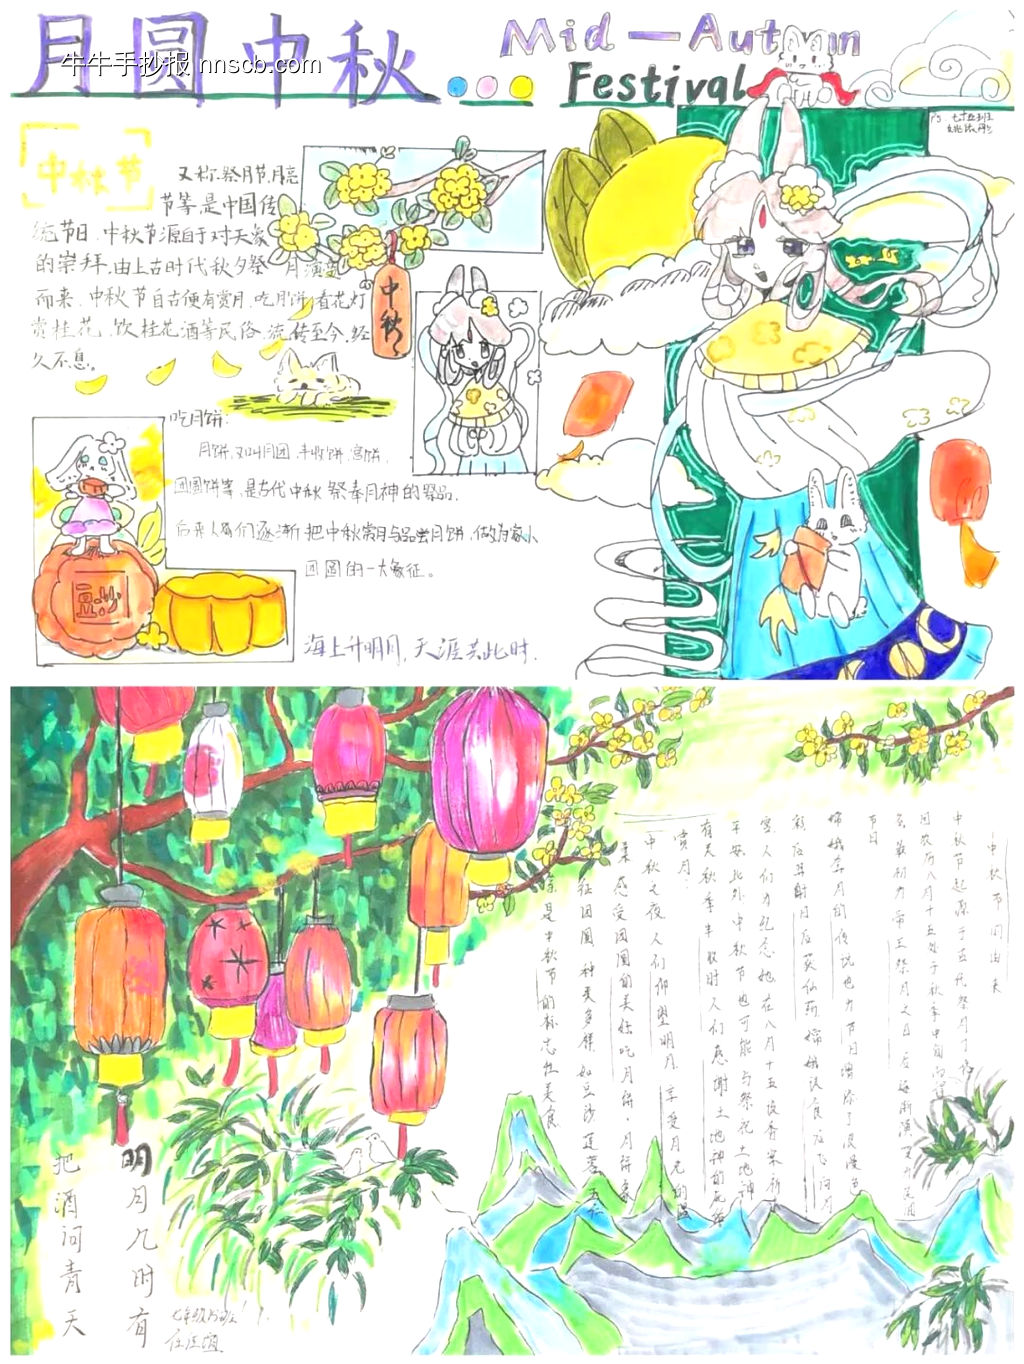 月圆中秋
牛牛手抄报 nnscb.com
Mid—Autumn
Festival
中秋节
又称祭月节、月亮
节等,是中国传
统节日。中秋节源自于对天象
的崇拜,由上古时代秋夕祭月演变
而来。中秋节自古便有赏月、吃月饼、看花灯
赏桂花、饮桂花酒等民俗,流传至今,经
久不息。
中秋
吃月饼:
月饼,又叫月团、丰收饼、宫饼、
团圆饼等,是古代中秋祭奉月神的祭品。
后来人们逐渐把中秋赏月与品尝月饼,做为家人
团圆的一大象征。
豆沙
海上升明月,天涯共此时.
中秋节的由来
中秋节起源于古代祭月
因农历八月十五处于秋季中间
节日
嫦娥奔月的传说也为节日增添了浪漫色
彩后羿射日后获仙药嫦娥误食后飞向月
宫人们为纪念她在八月十五设香案祈
平安此外中秋节也可能与祭祀土地神
有关秋季丰收时人们感谢土地神的
赏月
中秋之夜人们仰望明月,享受月光的
感受团圆的美好吃月饼,月饼象
征团圆 种类多样 如豆沙莲蓉五仁
是中秋节的标志性美食
明月几时有
把酒问青天